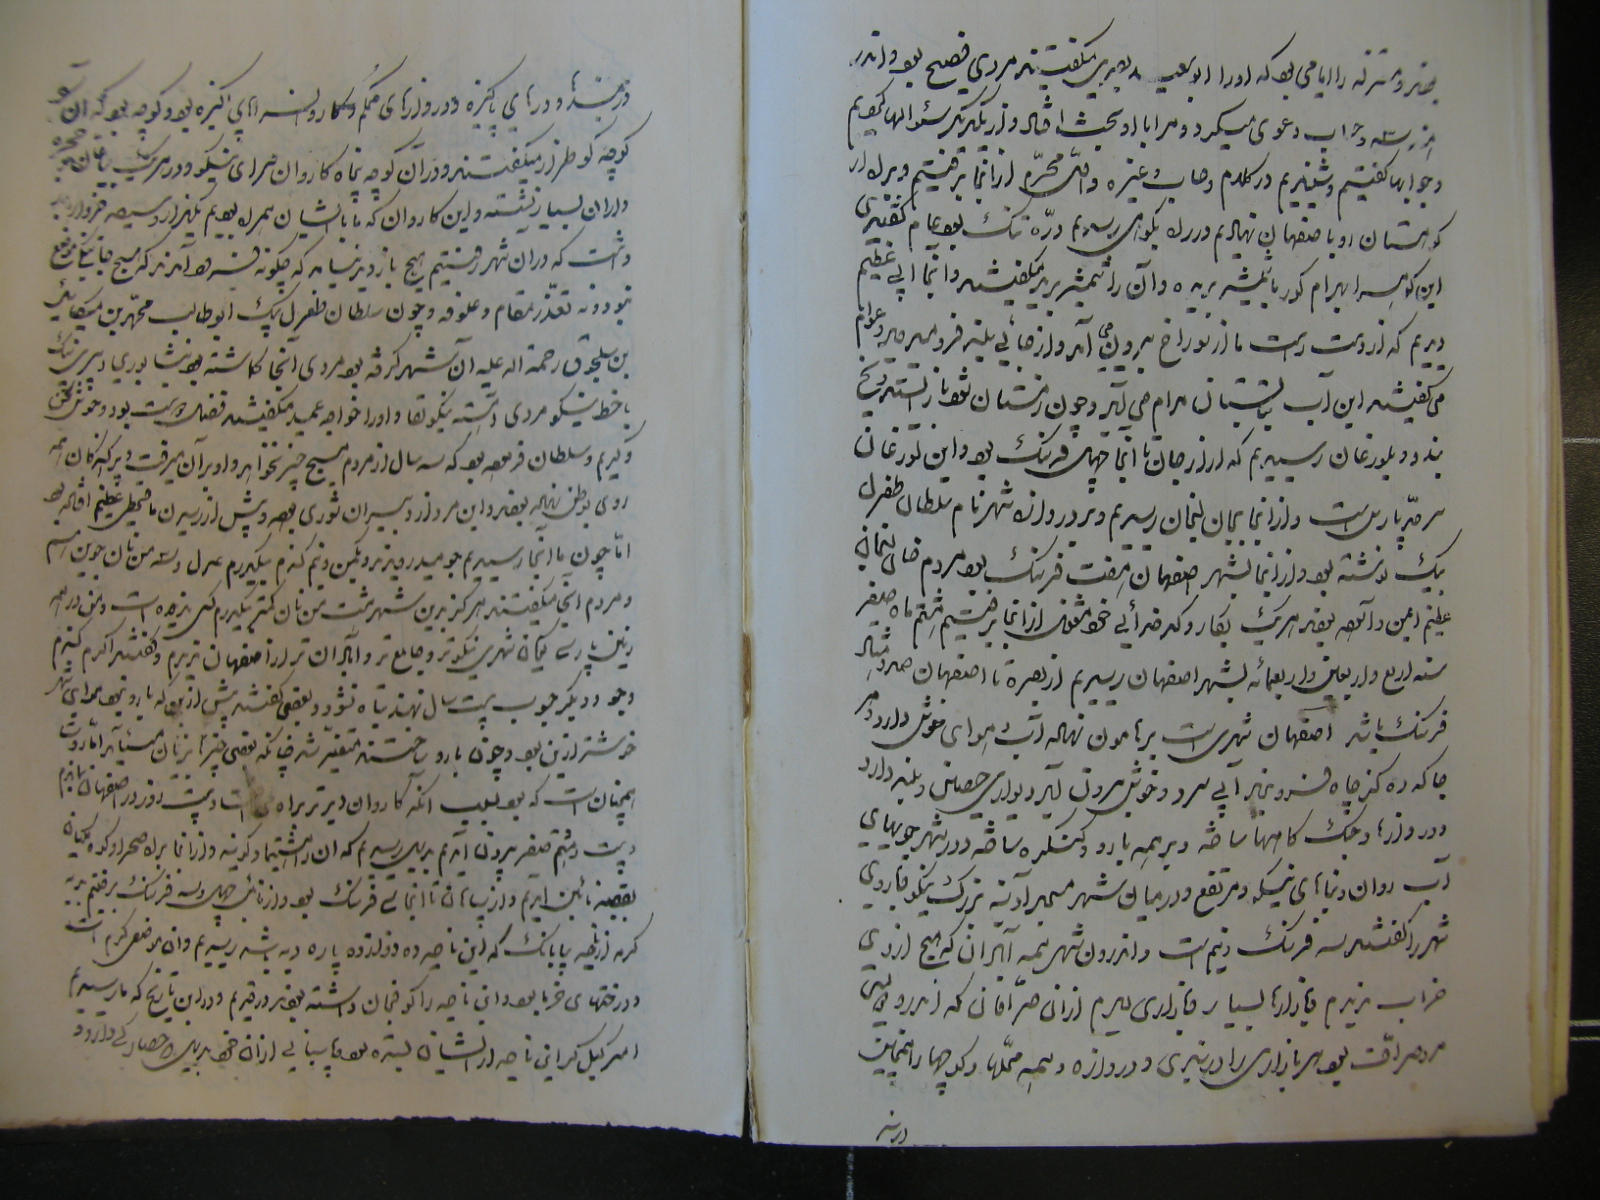 بودند و معتزله را امامی بود که او را ابوسعید بصری میگفتند مردی فصیح بود و اندر
هندسه و حساب دعوی میکرد و مرا با او بحث افتاد و از یکدیگر سئوالها کردیم
و جوابها گفتیم و شنیدیم در کلام و حساب و غیره و اول محرم از آنجا برفتیم و براه
کوهستان رو باصفهان نهادیم در راه بکوهی رسیدیم دره تنک بود عام گفتندی
این کوه را بهرام گور بشمشیر بریده و آن را شمشیر برید میگفتند و آنجا آبی عظیم
دیدیم که از دست راست ما از سوراخ بیرون می آمد و از جائی بلند فرو میدوید و عوام
می گفتند این آب بتابستان مدام می آید و چون زمستان شود باز ایستد و یخ
بندد و بلوردغان رسیدیم که از ارجان تا آنجا چهل فرسنک بود و این لوردغان
سرحد پارس است و از آنجا بخان لنجان رسیدیم و بر دروازه شهر نام سلطان طغرل
بیک نوشته بود و از آنجا بشهر اصفهان هفت فرسنک بود مردم خان لنجان
عظیم ایمن و آسوده بودند هر یک بکار و کدخدائی خود مشغول از آنجا برفتیم هشتم ماه صفر
سنه اربع و اربعین و اربعمائه بشهر اصفهان رسیدیم از بصره تا اصفهان صد و هشتاد
فرسنک باشد اصفهان شهری است بر هامون نهاده آب و هوای خوش دارد و هر
جا که ده گز چاه فرو برند آبی سرد و خوش بیرون آید و دیواری حصین و بلند دارد
و دروازها و جنک گاهها ساخته و بر همه بارو و کنگره ساخته و در شهر جویهای
آب روان و بناهای نیکو و مرتفع و در میان شهر مسجد آدینه بزرک نیکو و باروی
شهر را گفتند سه فرسنک و نیم است و اندرون شهر همه آبادان که هیچ از وی
خراب ندیدم و بازارهای بسیار و بازاری دیدم از آن صرافان که اندر او دویست
مرد صراف بود و هر بازاری را در بندی و دروازه و همه محلها و کوچها را همچنین
در بند
در بندها و درهای پاکیزه و دروازهای محکم و کاروانسراهای پاکیزه بود و کوچه بود که آن را
کوچه کو طراز میگفتند و در آن کوچه پنجاه کاروان سرای نیکو و در هر یک بیاعان و حجره
داران بسیار نشسته و این کاروان که ما با ایشان همراه بودیم یکهزار و سیصد خروار بار
داشت که در آن شهر رفتیم هیچ بازدید نیامد که چگونه فرود آمدند که هیچ جا تنگی موضع
نبود و نه تعذر مقام و علوفه و چون سلطان طغرل بیک ابوطالب محمد بن میکائیل
بن سلجوق رحمة اله علیه آن شهر گرفته بود مردی آنجا گماشته بود نیشابوری دبیری نیک
با خط نیکو مردی آهسته نیکو لقا و او را خواجه عمید میگفتند فضل دوست بود و خوش سخن
و کریم و سلطان فرموده بود که سه سال از مردم هیچ چیز نخواهند و او بر آن میرفت و پراکندگان همه
روی بوطن نهاده بودند و این مرد از دبیران شوری بوده و پیش از رسیدن ما قحطی عظیم افتاده بود
اما چون ما آنجا رسیدیم جو میدرویدند و یکمن و نیم گندم بیکدرم عدل و سه من نان جوین هم
و مردم آنجا میگفتند هرگز بدین شهر هشت من نان کمتر بیکدرم کس ندیده است و من در همه
زمین پارسی گویان شهری نیکوتر و جامع تر و آبادان تر از اصفهان ندیدم و گفتند اگر گندم
و جو و دیگر حبوب بیست سال نهند تباه نشود و بعضی گفتند پیش از این که بارو نبود هوای شهر
خوشتر از این بود و چون بارو ساختند متغیر شد چنانکه بعضی چیزها بزیان میآید اما روستا
همچنان است که بود بسبب آنکه کاروان دیرتر براه می افتاد بیست روز در اصفهان بماندم
و بیست و هشتم صفر بیرون آمدیم بدیهی رسیدیم که آن را هیثماباد گویند و از آنجا براه صحرا و کوه مسکیان
بقصبه نائین آمدیم و از سپاهان تا آنجا سی فرسنک بود و از نائین چهل و سه فرسنک برفتیم بدیه
گرمه از ناحیه بیابانک که این ناحیه ده دوازده پاره دیه باشد رسیدیم و آن موضعی گرم است
و درختهای خرما بود و این ناحیه را کوفجان داشته بودند در قدیم و در این تاریخ که ما رسیدیم
امیر گیلکی این ناحیه از ایشان بستده بود و نایبی از آن خود بدیهی که حصارکی دارد و